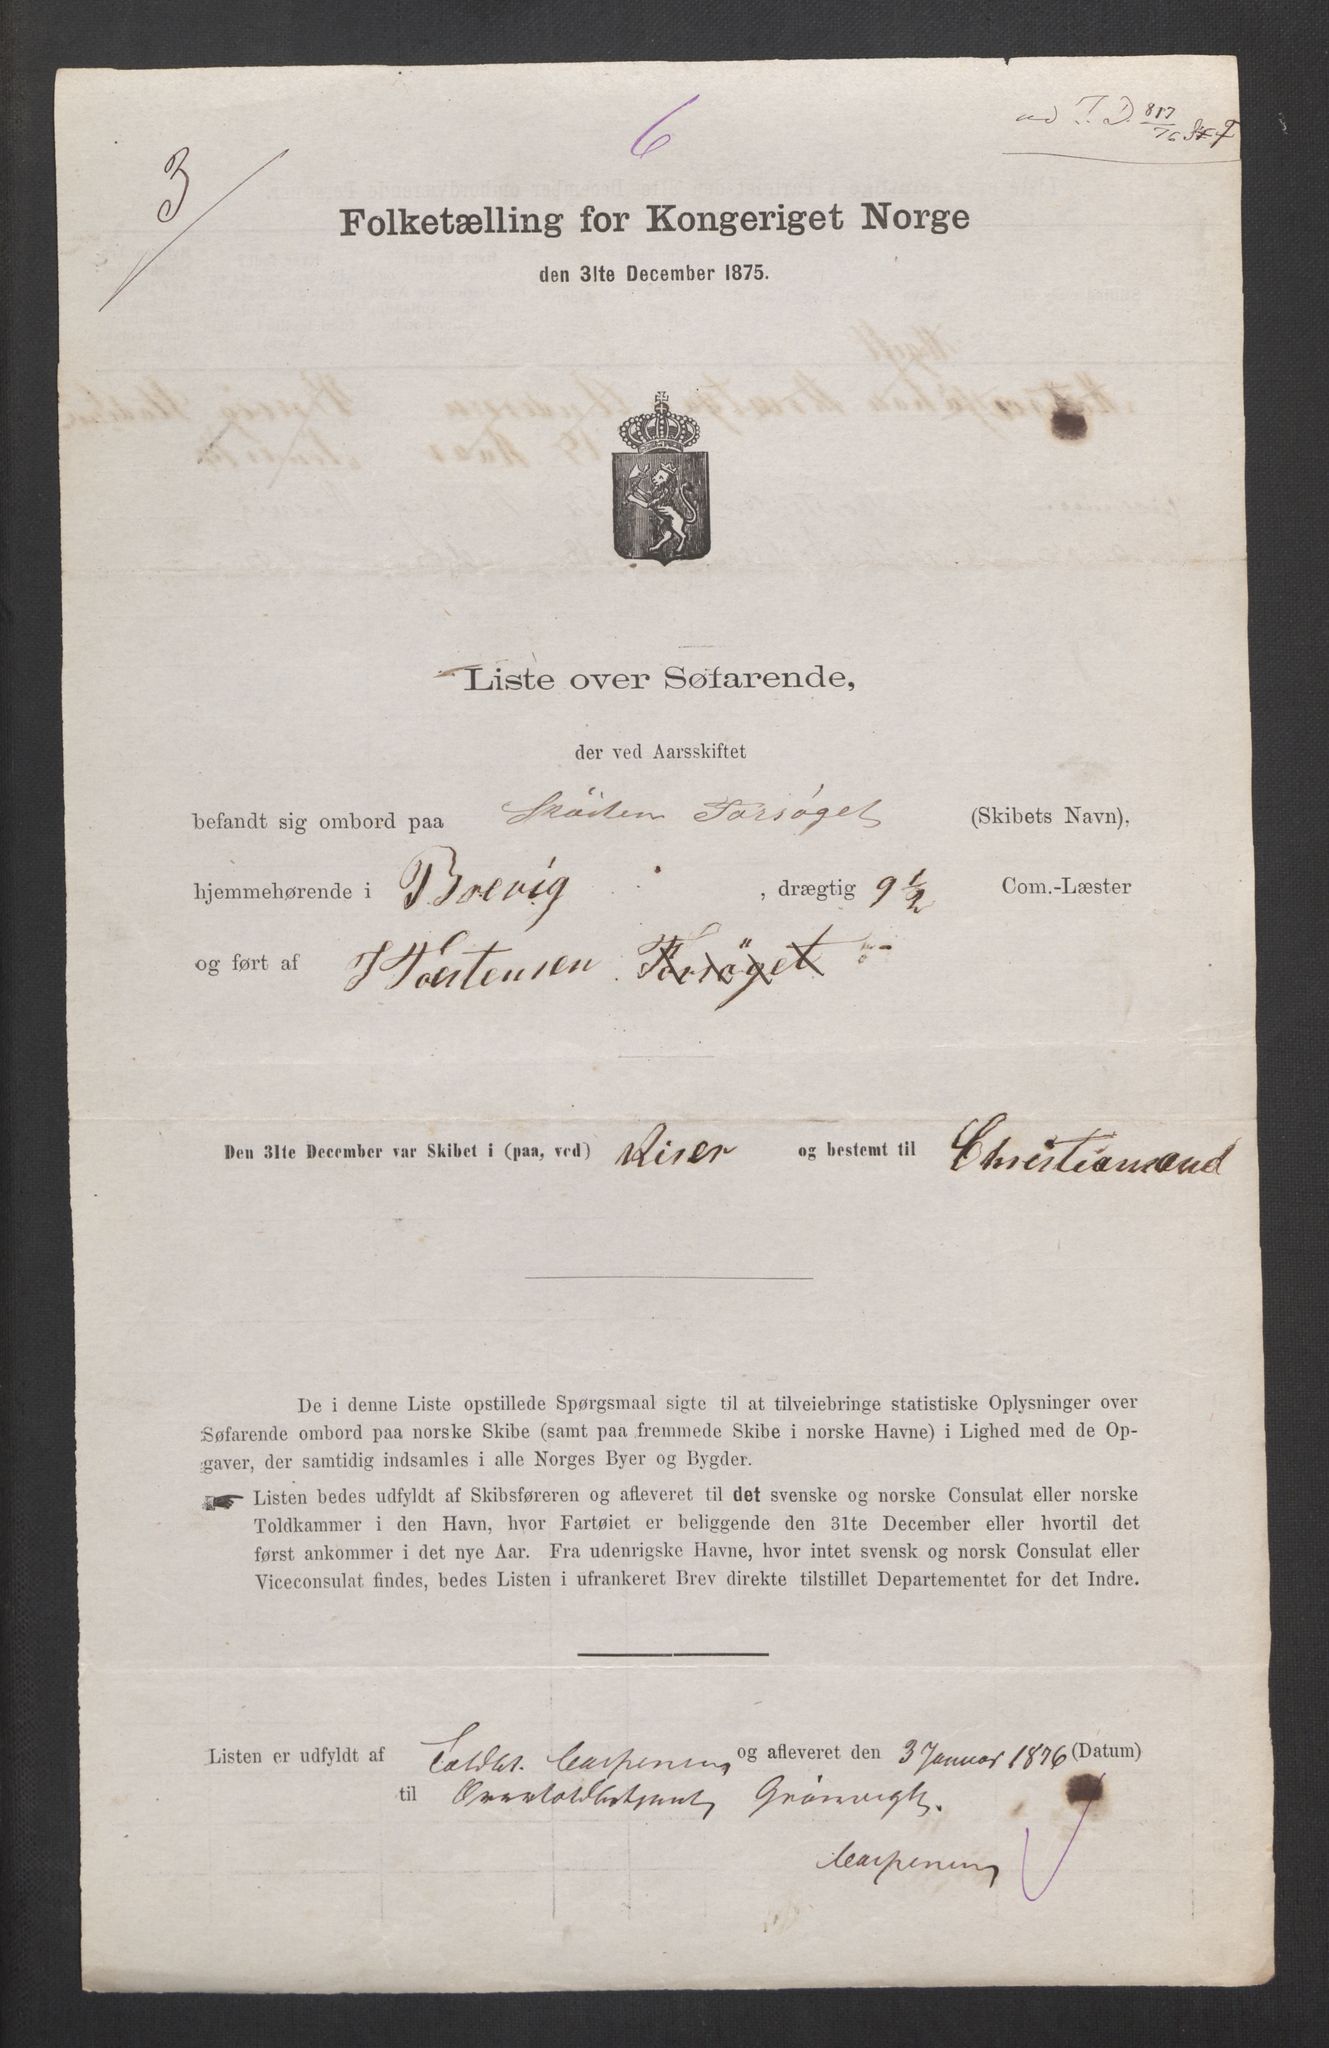 3
6
ad T.D. 817/76
Folketælling for Kongeriget Norge
den 31te December 1875.
Liste over Søfarende,
der ved Aarsskiftet
befandt sig ombord paa Skøiten Forsøget (Skibets Navn),
hjemmehørende i Brevig, drægtig 9 1/2 Com.-Læster
og ført af I Torstensen Forsöget
Den 31te December var Skibet i (paa, ved) Riser og bestemt til Christiansand
De i denne Liste opstillede Spørgsmaal sigte til at tilveiebringe statistiske Oplysninger over
Søfarende ombord paa norske Skibe (samt paa fremmede Skibe i norske Havne) i Lighed med de Op-
gaver, der samtidig indsamles i alle Norges Byer og Bygder.
☛ Listen bedes udfyldt af Skibsføreren og afleveret til det svenske og norske Consulat eller norske
Toldkammer i den Havn, hvor Fartøiet er beliggende den 31te December eller hvortil det
først ankommer i det nye Aar. Fra udenrigske Havne, hvor intet svensk og norsk Consulat eller
Viceconsulat findes, bedes Listen i ufrankeret Brev direkte tilstillet Departementet for det Indre.
Listen er udfyldt af Toldbt. Caspersen og afleveret den 3 Januar 1876 (Datum)
til Overtoldbetjent Grönvigh.
Caspersen